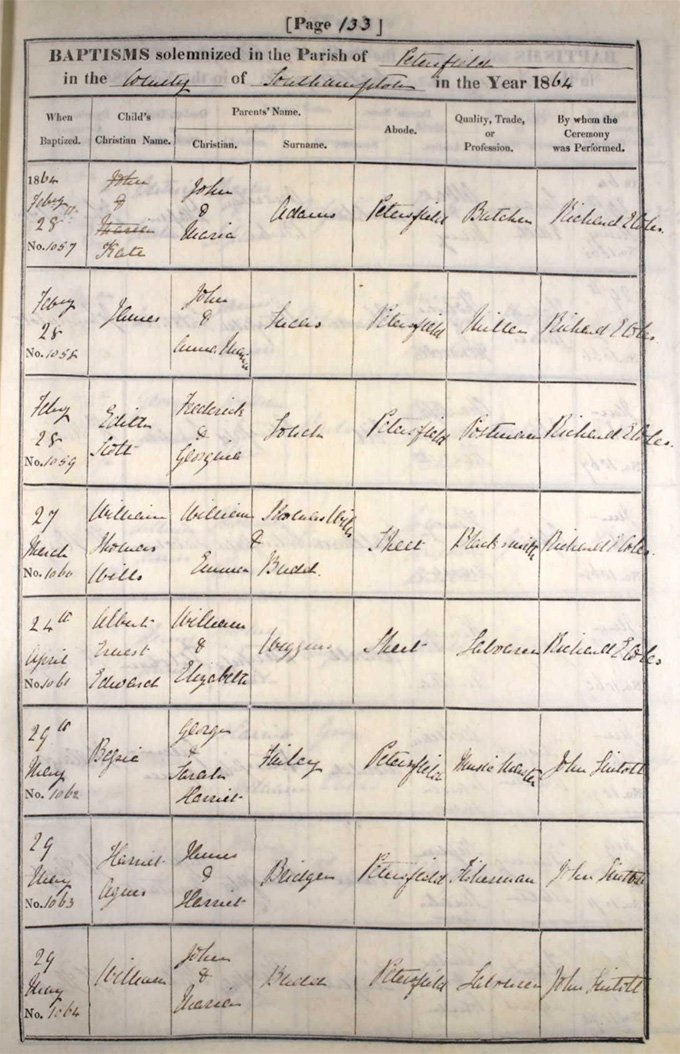 [Page 133]
BAPTISMS solemnized in the Parish of Petersfield
in the County of Southampton in the Year 1864
When Baptized.
Child's Christian Name.
Parents' Name.
Christian.
Surname.
Abode.
Quality, Trade, or Profession.
By whom the Ceremony was Performed.
1864
Feby
28th
No. 1057
John
&
Maria
Kate
John
&
Maria
Adams
Petersfield
Butcher
Richard E Coles.
Feby
28
No. 1058
James
John
&
Anna Maria
Lucas
Petersfield
Miller
Richard E Coles.
Feby
28
No. 1059
Edith
Scott
Frederick
&
Georgina
Petersfield
Postman
Richard E Coles.
27
March
No. 1060
William
Thomas
Wills
William
Emma
Thomas Wills
&
Budd.
Sheet
Blacksmith
Richard E Coles.
24th
April
No. 1061
Albert
Ernest
Edward
William
&
Elizabeth
Wiggins
Sheet
Labourer
Richard E Coles
29th
May
No. 1062
Bessie
George
&
Sarah
Harriet
Petersfield
Music Master
John Sintott
29
May
No. 1063
Harriet
Agnes
James
&
Harriet
Bridger
Petersfield
Fisherman
John Sintott
29
May
No. 1064
William
John
&
Maria
Budd
Petersfield
Labourer
John Sintott